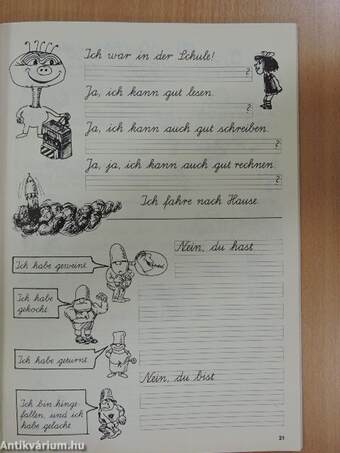 Ich war in der Schule!
?
Ja, ich kann gut lesen.
?
Ja, ich kann auch gut schreiben.
?
Ja, ja, ich kann auch gut rechnen.
?
Ich fahre nach Hause.
Nein, du hast
Ich habe geweint.
Ich habe
gekocht.
Ich habe geturnt.
Nein, du bist
Ich bin hinge-
fallen, und ich
habe gelacht.
21
Antikvárium.hu